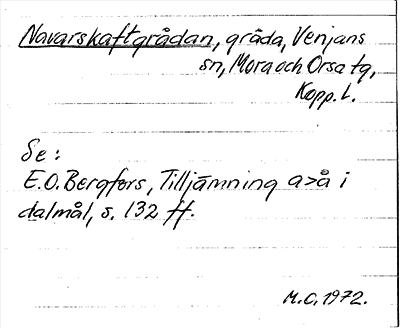 Navarskaftgrådan, gråda, Venjans
sn, Mora och Orsa tg,
Kopp. l.
Se:
E.O. Bergfors, Tilljämning a>å i
dalmål, s. 132 ff.
M.C. 1972.